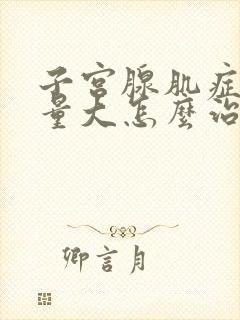 子宫腺肌症
量大怎麽治
卿言月